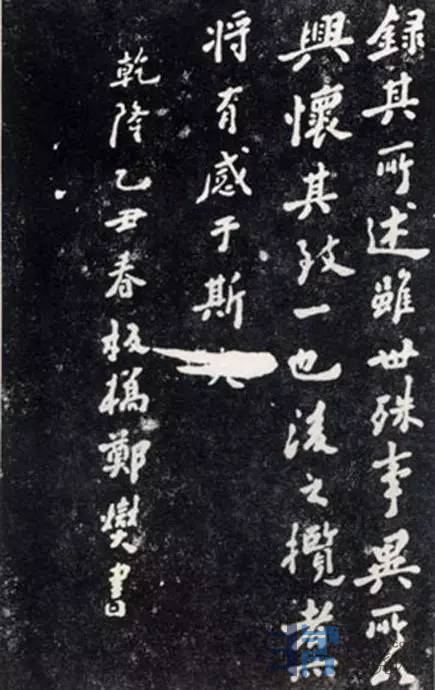 録其所述雖世殊事異所以
興懷其致一也後之攬者亦
将有感于斯文
乾隆乙丑春板橋鄭燮書